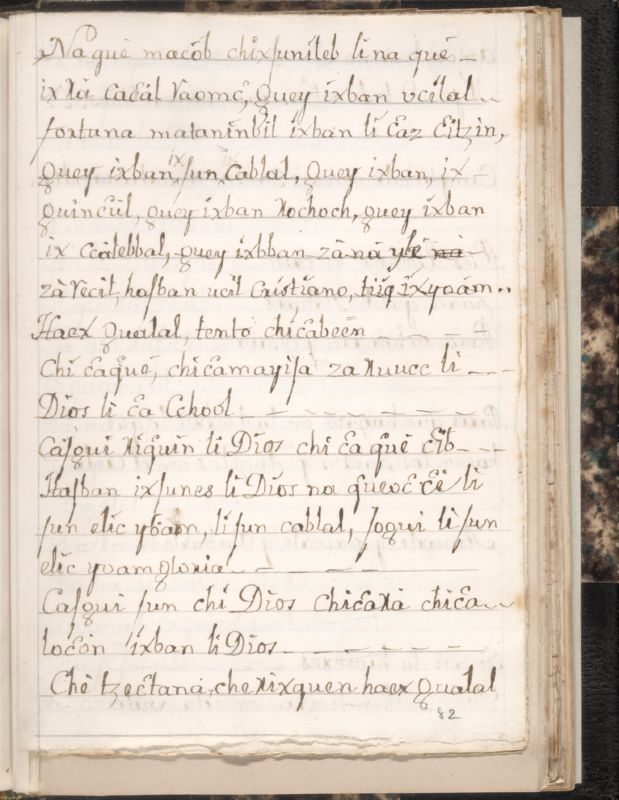 Naquè macòb chixsunileb li na què
ixxà cacàl vaomc, quey ixban vcilal
fortuna mataninbil ixban li caz Citzin,
quey ixban ix sun cablal, quey ixban, ix
quincül, quey ixban xochoch, quey ixban
ix Ccàtebbal, quey ixbban zà na yìe
zà vecil, hasban ucil Cristiano, tiiq ixyoàm..
Haex qualal, tento chicabeen
Chi caquè, chicamayisa za xuucc li
Dios li ca Cchool
Càsqui xiquin li Dios chi ca què cib
Hasban ixsunes li Dios na queoc cè li
sun elic ybàom, li sun cablal, soqui li sun
elic yvam gloria
Casqui sun chi Dios chicaxà chica
locòn ixban li Dios
Chè tzectanà, chexixquen haex qualal
82